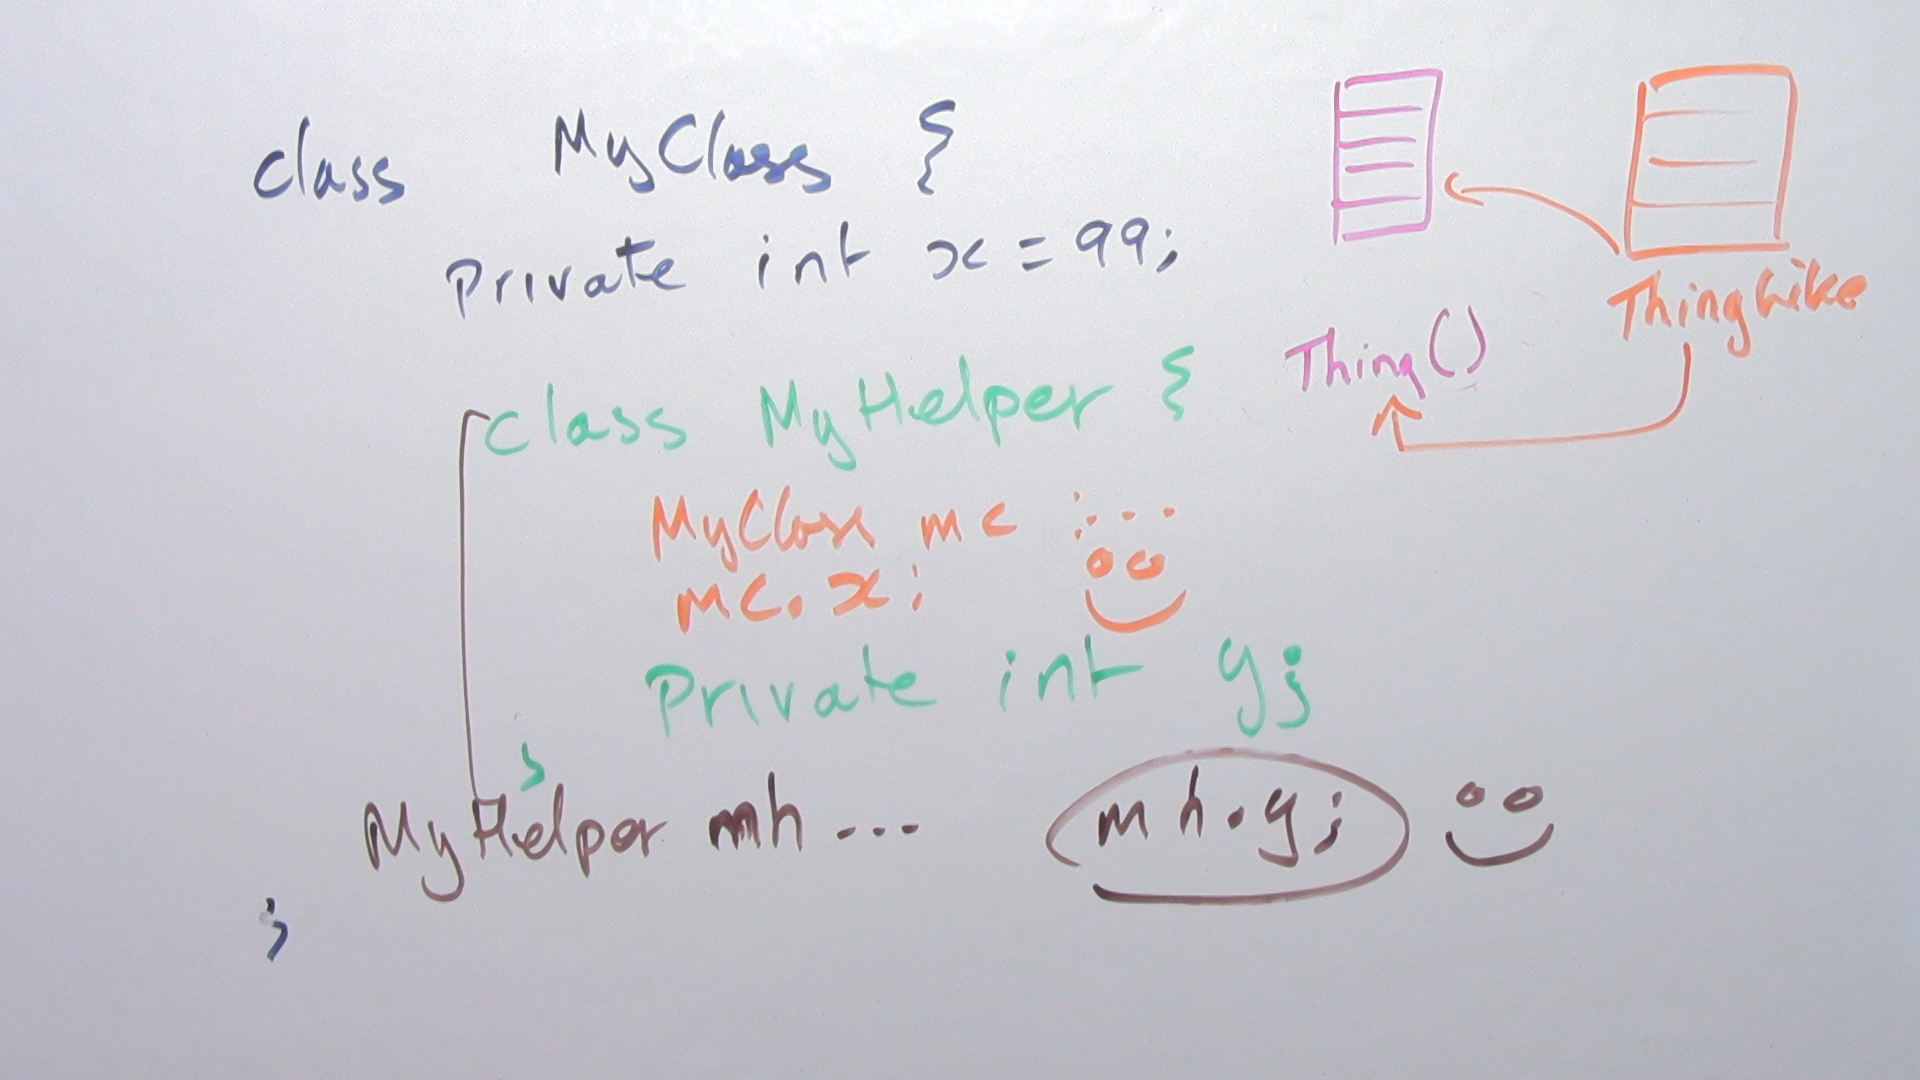 class MyClass {
private int x = 99;
class MyHelper {
MyClass mc : ...
mc.x;
private int y;
}
MyHelper mh ... mh.y;
}
ThingLike
Thing()